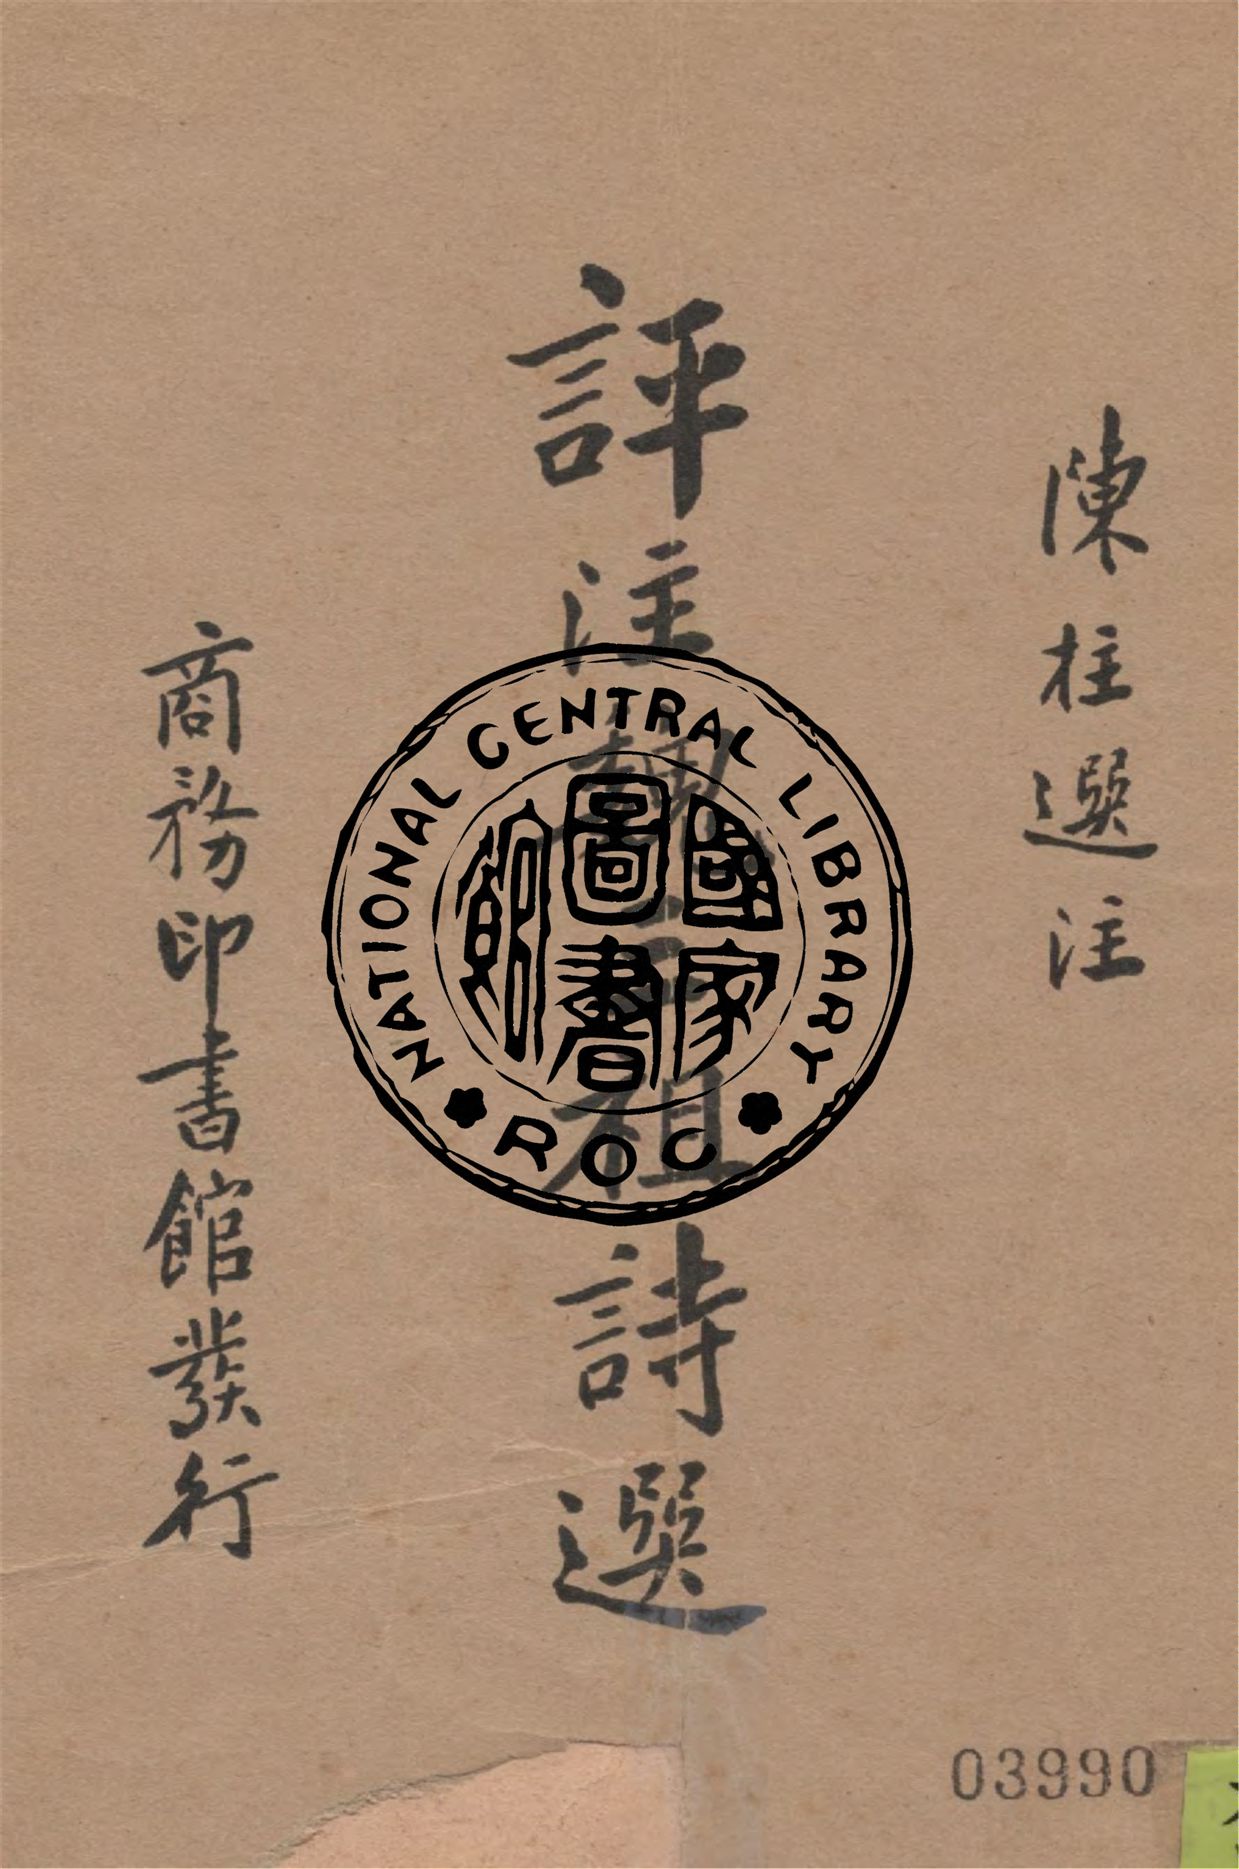 陳柱選注
評注魏三祖詩選
商務印書館發行
NATIONAL CENTRAL LIBRARY
ROC
國家
圖書
館
03990